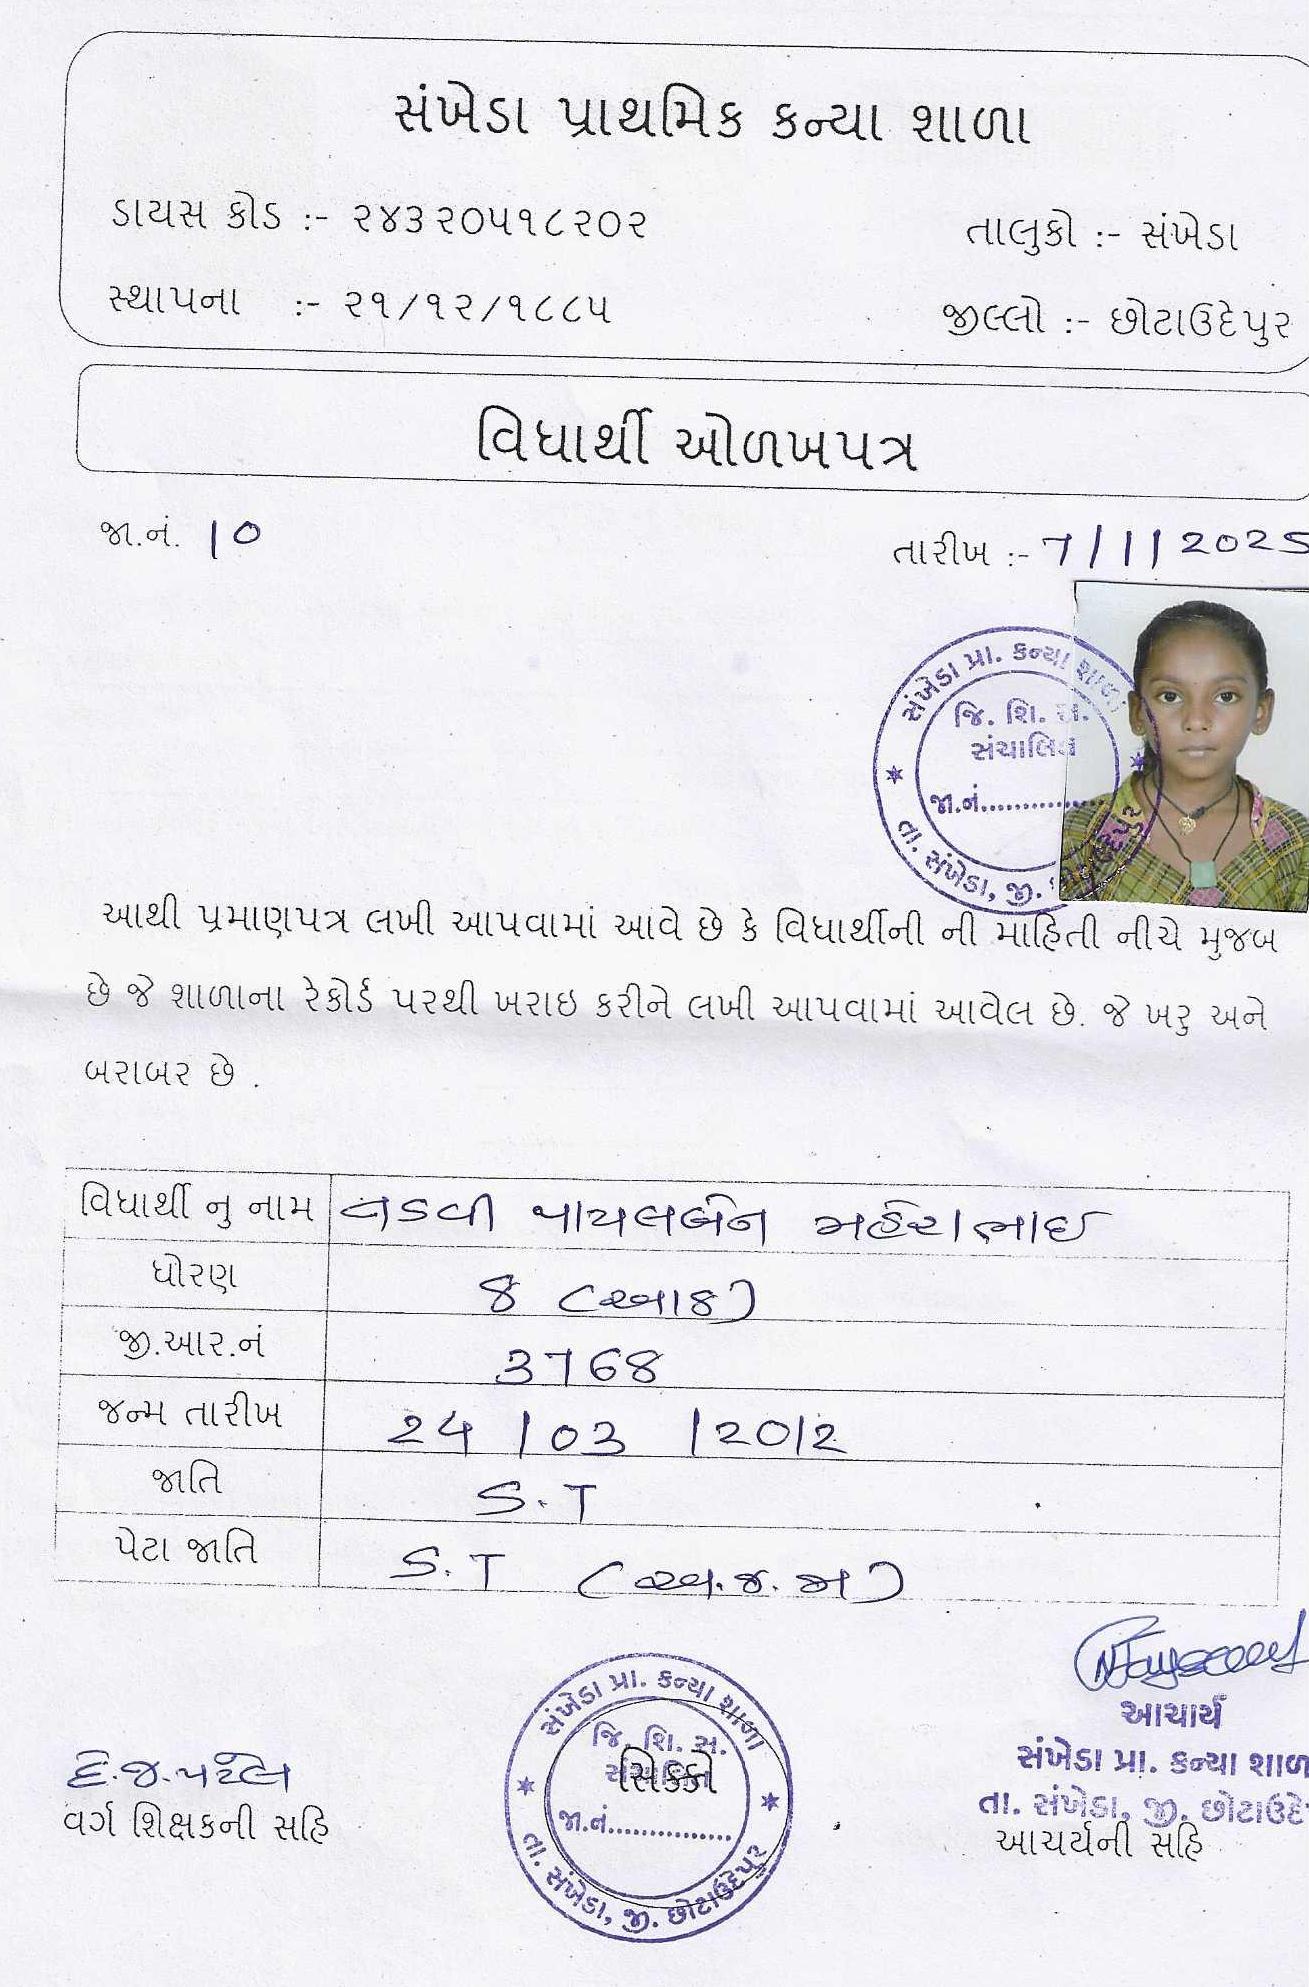 સંખેડા પ્રાથમિક કન્યા શાળા
ડાયસ કોડ :- ૨૪૩૨૦૫૧૮૨૦૨
તાલુકો :- સંખેડા
સ્થાપના :- ૨૧/૧૨/૧૮૮૫
જીલ્લો :- છોટાઉદેપુર
વિધાર્થી ઓળખપત્ર
જા.નં. 10
તારીખ :- 7/1/2025
સંખેડા પ્રા. કન્યા શાળા
જિ. શિ. સ.
સંચાલિત
જા.નં...............
તા. સંખેડા, જી. છોટાઉદેપુર
આથી પ્રમાણપત્ર લખી આપવામાં આવે છે કે વિધાર્થીની ની માહિતી નીચે મુજબ
છે જે શાળાના રેકોર્ડ પરથી ખરાઇ કરીને લખી આપવામાં આવેલ છે. જે ખરુ અને
બરાબર છે .
વિધાર્થી નુ નામ તડવી પાયલબેન
ધોરણ 8 (આઠ)
જી.આર.નં 3768
જન્મ તારીખ 24/03/2012
જાતિ S.T
પેટા જાતિ S.T (અ.જ.જા)
સંખેડા પ્રા. કન્યા શાળા
જિ. શિ. સ.
સિક્કો
જા.નં...............
તા. સંખેડા, જી. છોટાઉદેપુર
આચાર્ય
સંખેડા પ્રા. કન્યા શાળ
તા. સંખેડા, જી. છોટાઉદે
આચર્યની સહિ
ટે.જ.પટેલ
વર્ગ શિક્ષકની સહિ